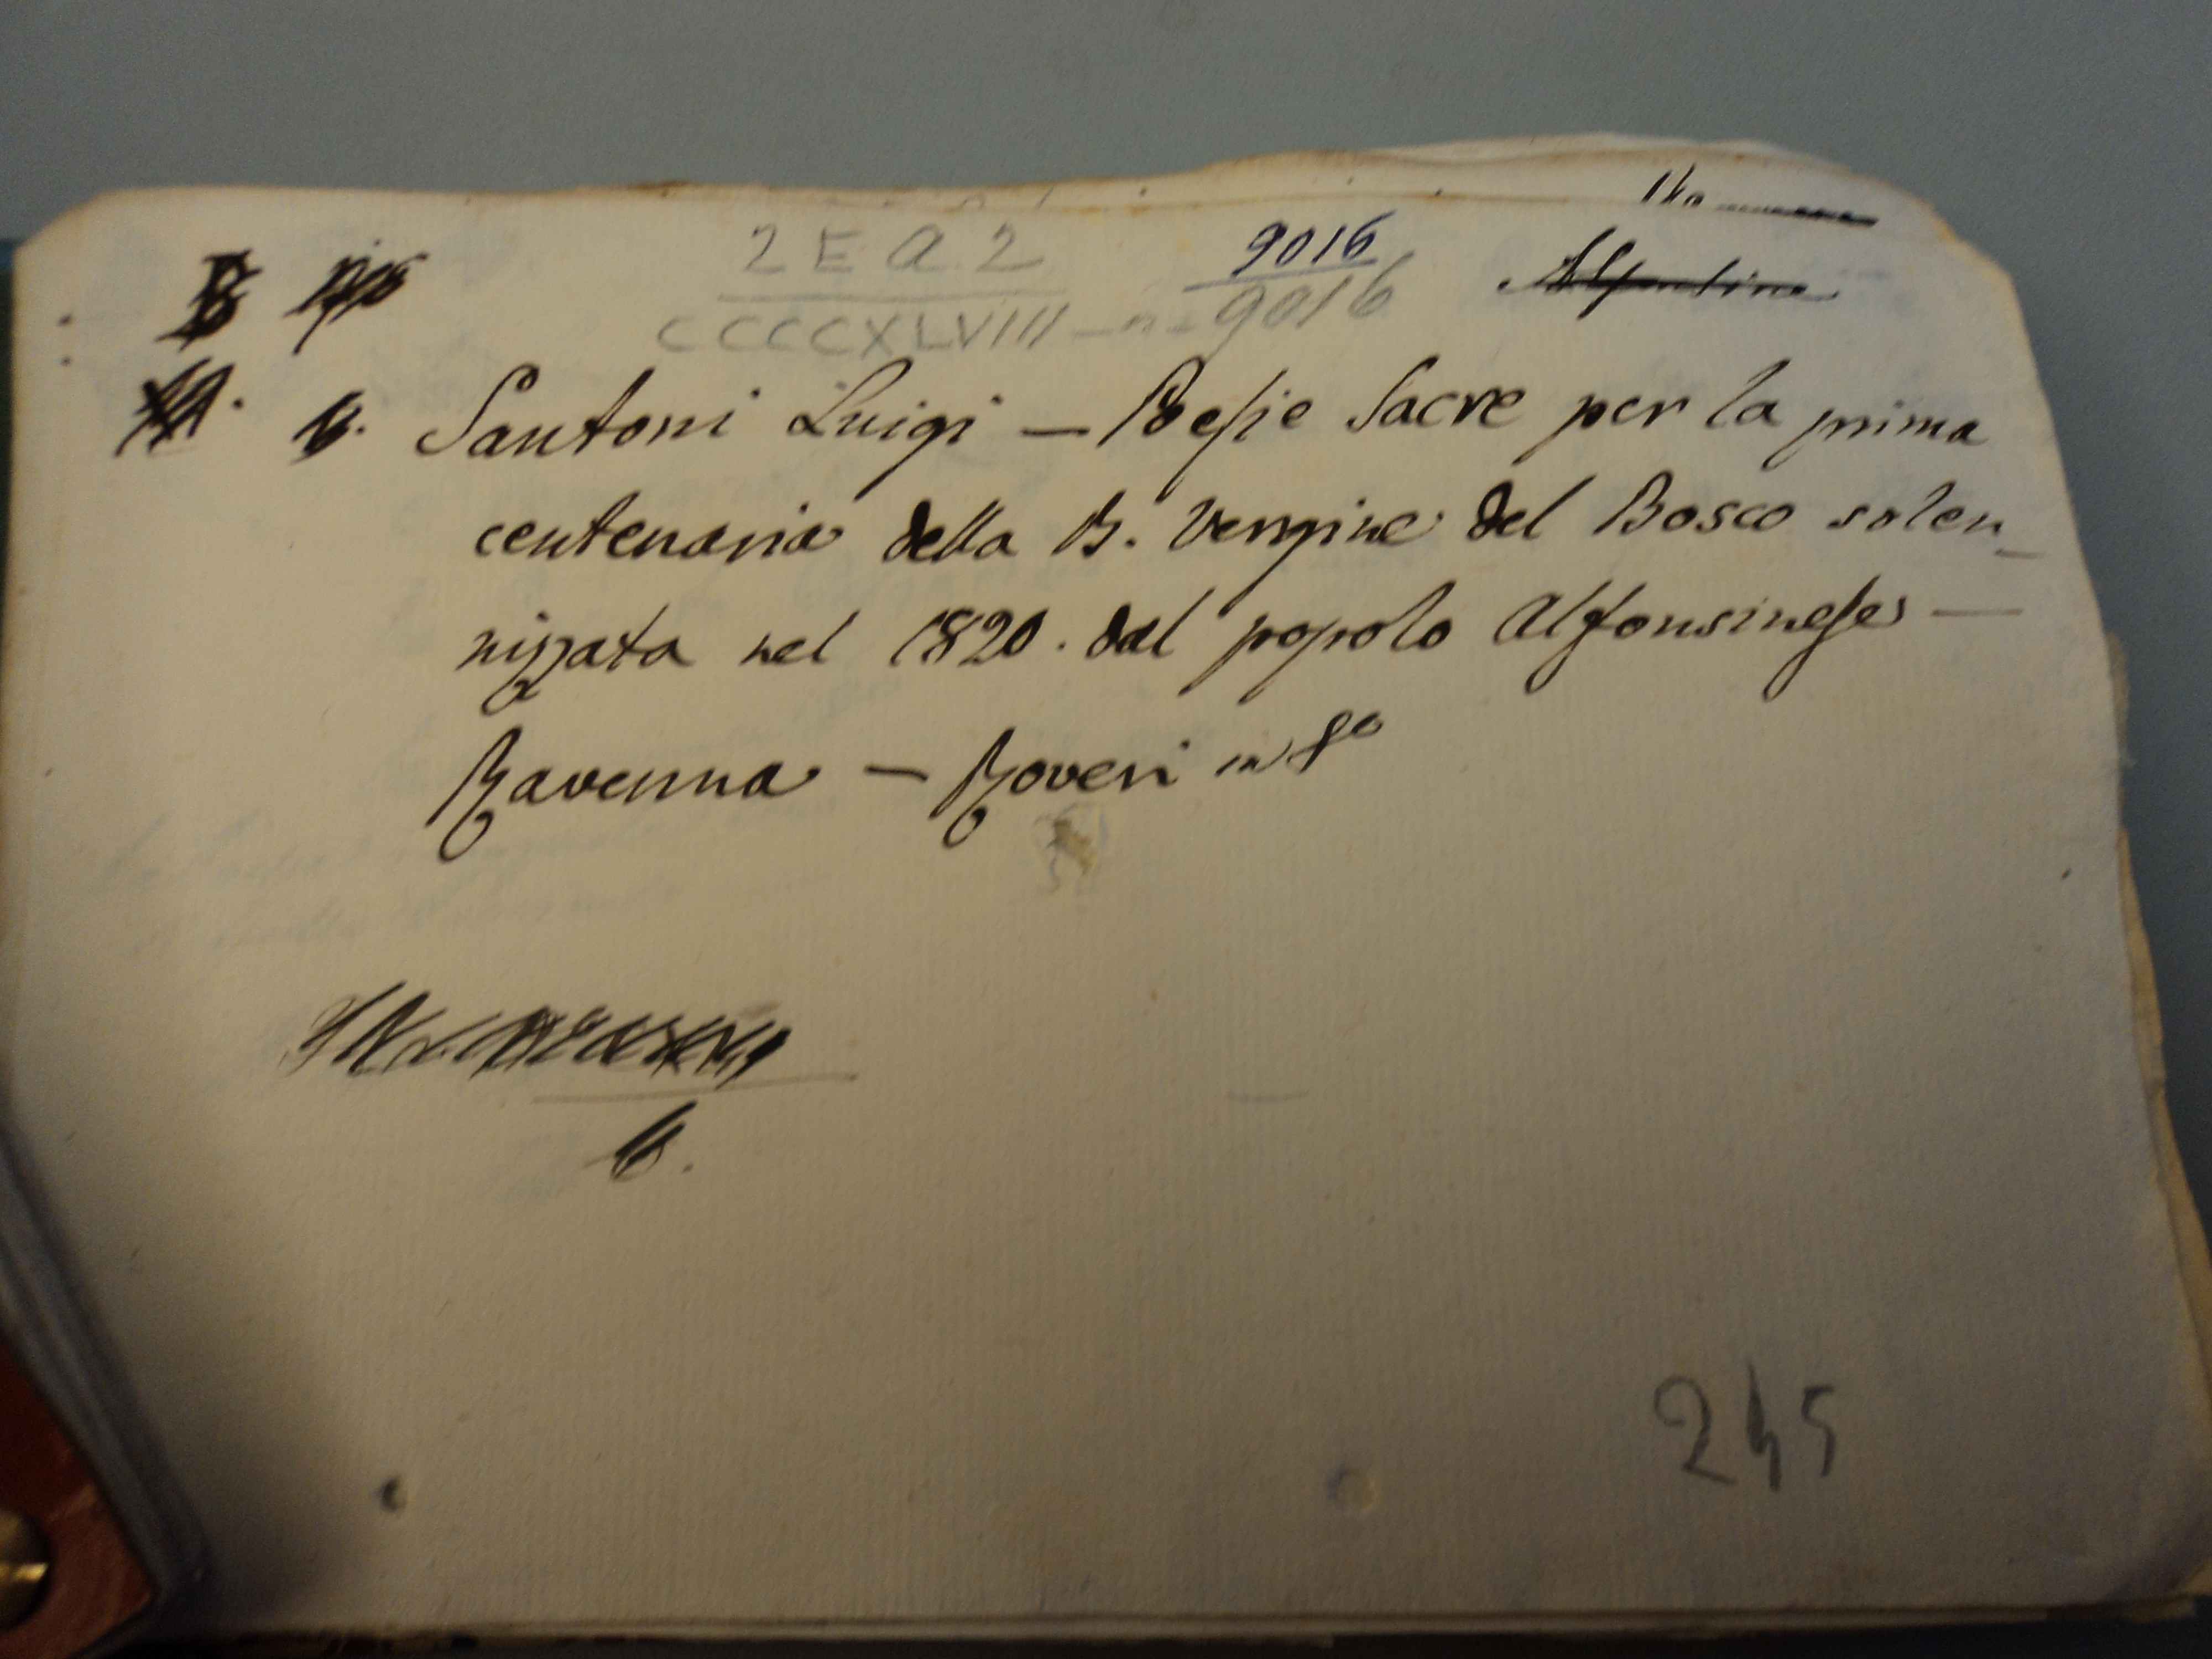 2 E a 2
9016
CCCCXLVIII - n - 9016
Santoni Luigi — Poesie Sacre per la prima
centenaria della B. Vergine del Bosco solen_
nizzata nel 1820. dal popolo Alfonsinese —
Ravenna — Roveri in 8º
245